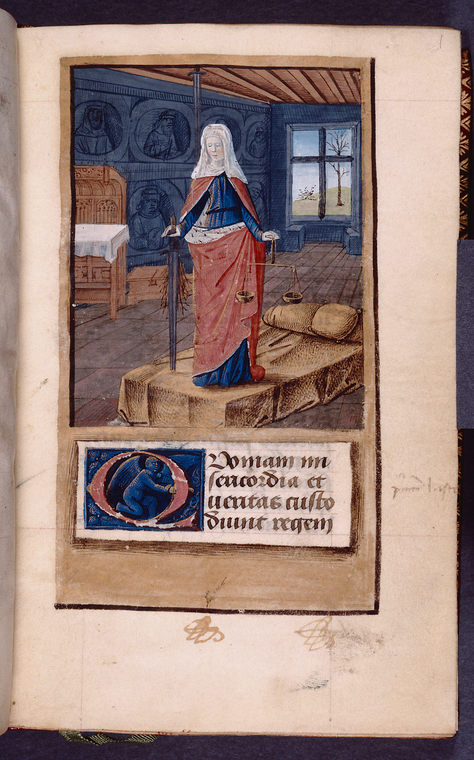 1
Quoniam mi
sericordia et
ueritas custo
diunt regem